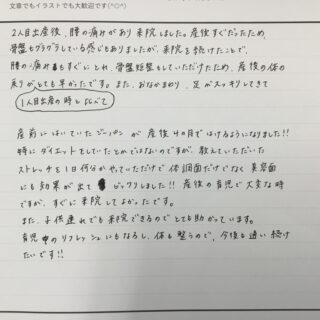 文章でもイラストでも大歓迎です(^○^)
2人目出産後、腰の痛みがあり来院しました。産後すぐだったため、
骨盤もグラグラしている感じもありましたが、来院を続けたことで、
腰の痛みもすぐにとれ、骨盤矯正もしていただけたため、産後の体の
戻りがとても早かったです。また、おなかまわり、足がスッキリしてきて
1人目出産の時と比べて
産前にはいていたジーパンが産後4ヵ月ではけるようになりました!!
特にダイエットをしていたとかではないのですが、教えていただいた
ストレッチを1日何分かやっていただけで体調面だけでなく美容面
にも効果が出てビックリしました!! 産後の育児で大変な時
ですが、すぐに来院してよかったです。
また、子供連れでも来院できるのでとても助かっています。
育児中のリフレッシュにもなるし、体も整うので、今後も通い続け
たいです!!